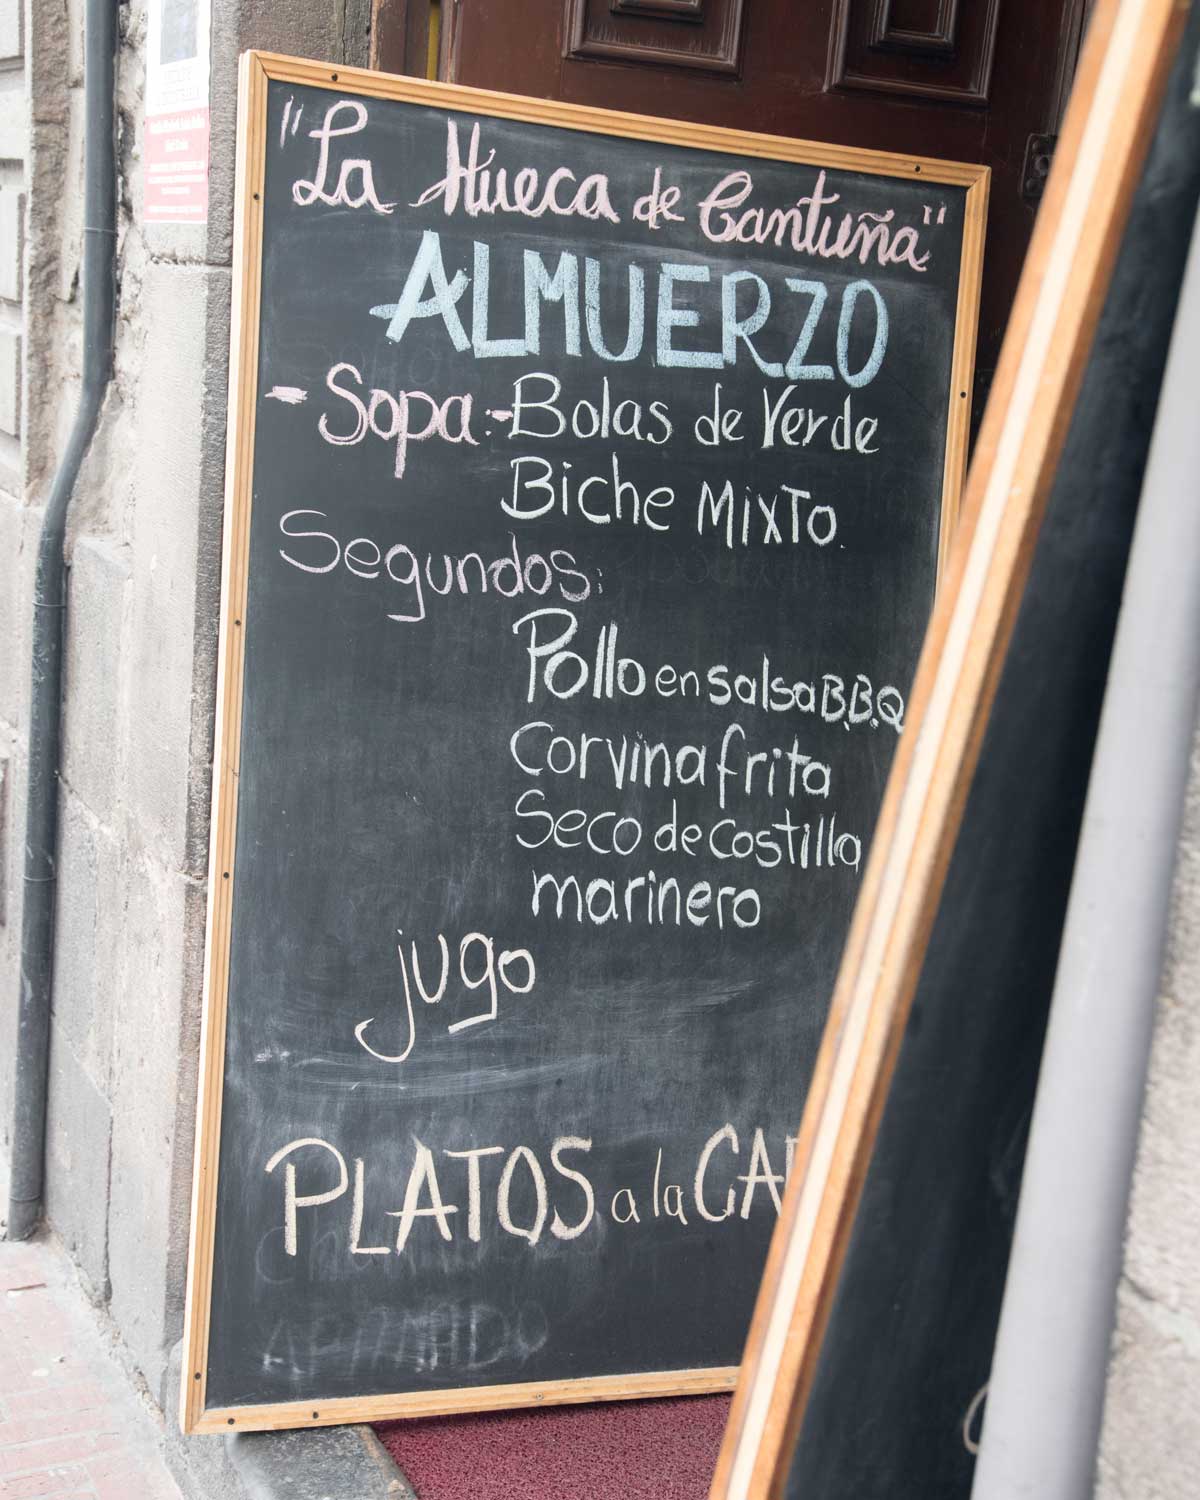 "La Hueca de Cantuña"
ALMUERZO
- Sopa:- Bolas de Verde
Biche MIXTO.
Segundos:
Pollo en salsa B.B.Q
Corvina frita
Seco de costilla
marinero
jugo
PLATOS a la CAR